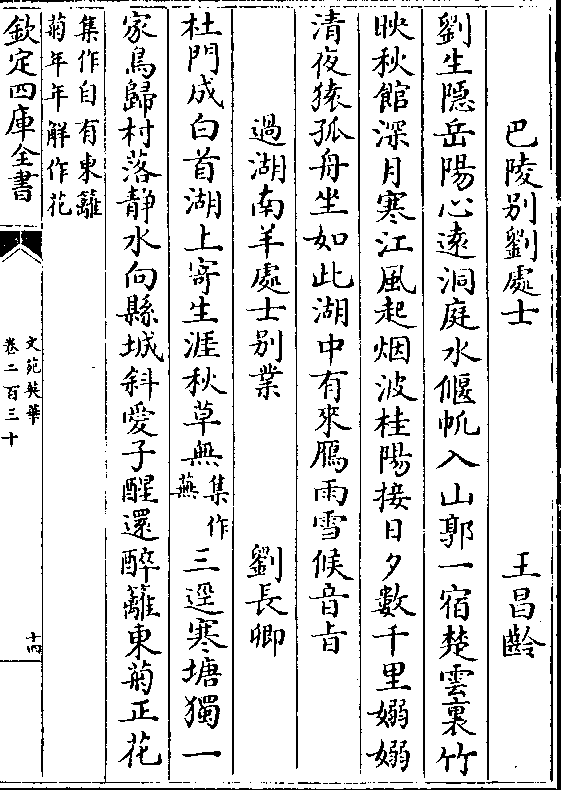 巴陵别劉處士 王昌齡
劉生隠岳陽心逺洞庭水偃帆入山郭一宿楚雲裏竹
映秋館深月寒江風起烟波桂陽接日夕數千里嫋嫋
清夜猿孤舟坐如此湖中有來鴈雨雪候音旨
過湖南羊處士别業 劉長卿
杜門成白首湖上寄生涯秋草無集作蕪三逕寒塘獨一
家鳥歸村落靜水向縣城斜愛子醒還醉籬東菊正花
集作自有東籬
菊年年解作花
欽定四庫全書
文苑英華
卷二百三十
十四